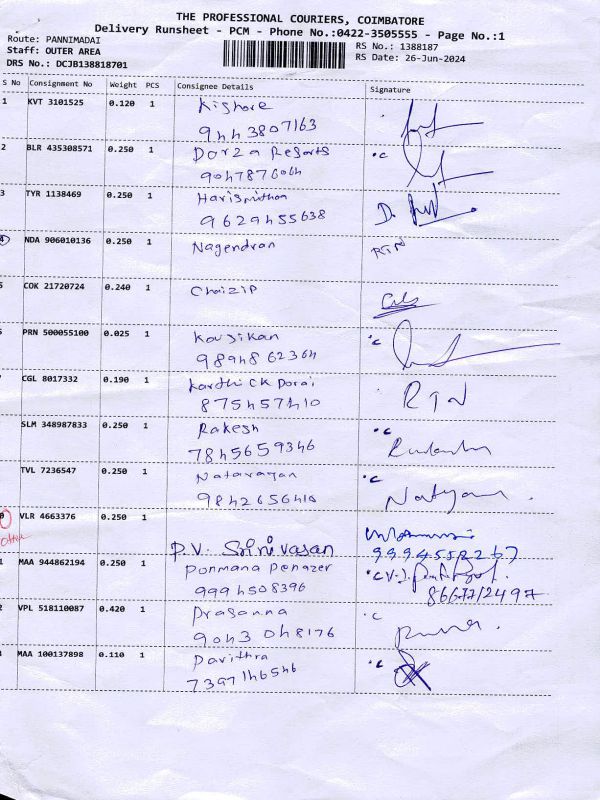 THE PROFESSIONAL COURIERS, COIMBATORE
Delivery Runsheet - PCM - Phone No.:0422-3505555 - Page No.:1
Route: PANNIMADAI
Staff: OUTER AREA
DRS No.: DCJB138818701
RS No.: 1388187
RS Date: 26-Jun-2024
S No Consignment No Weight PCS Consignee Details Signature
1 KVT 3101525 0.120 1 Kishore
9443807163
2 BLR 435308571 0.250 1 Dorza Resorts
9047876064
3 TYR 1138469 0.250 1 Harismithan
9629455638
4 NDA 906010136 0.250 1 Nagendran RTN
COK 21720724 0.240 1 Chaizip
PRN 500055100 0.025 1 Kousikan
9894862364
CGL 8017332 0.190 1 Karthick Dorai RTN
875457410
SLM 348987833 0.250 1 Rakesh
7845659346
TVL 7236547 0.250 1 Natarayan
9842656410
VLR 4663376 0.250 1 P.V. Srinivasan
9994558267
1 MAA 944862194 0.250 1 Ponmana Penazer
9994508396 8667712497
2 VPL 518110087 0.420 1 Prasanna
9043 048176
MAA 100137898 0.110 1 Pavithra
7397146546